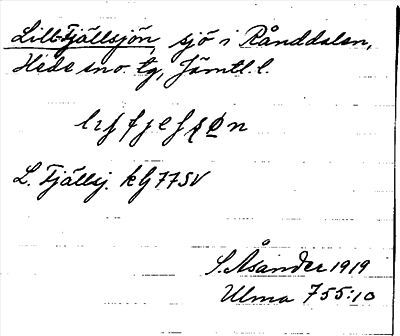 Lill-Fjällsjön, sjö i Rånddalen,
Hede sno. tg, Jämtl. l.
L. Fjällsj. kG 77 SV
S. Åsander 1919
Ulma 755:10